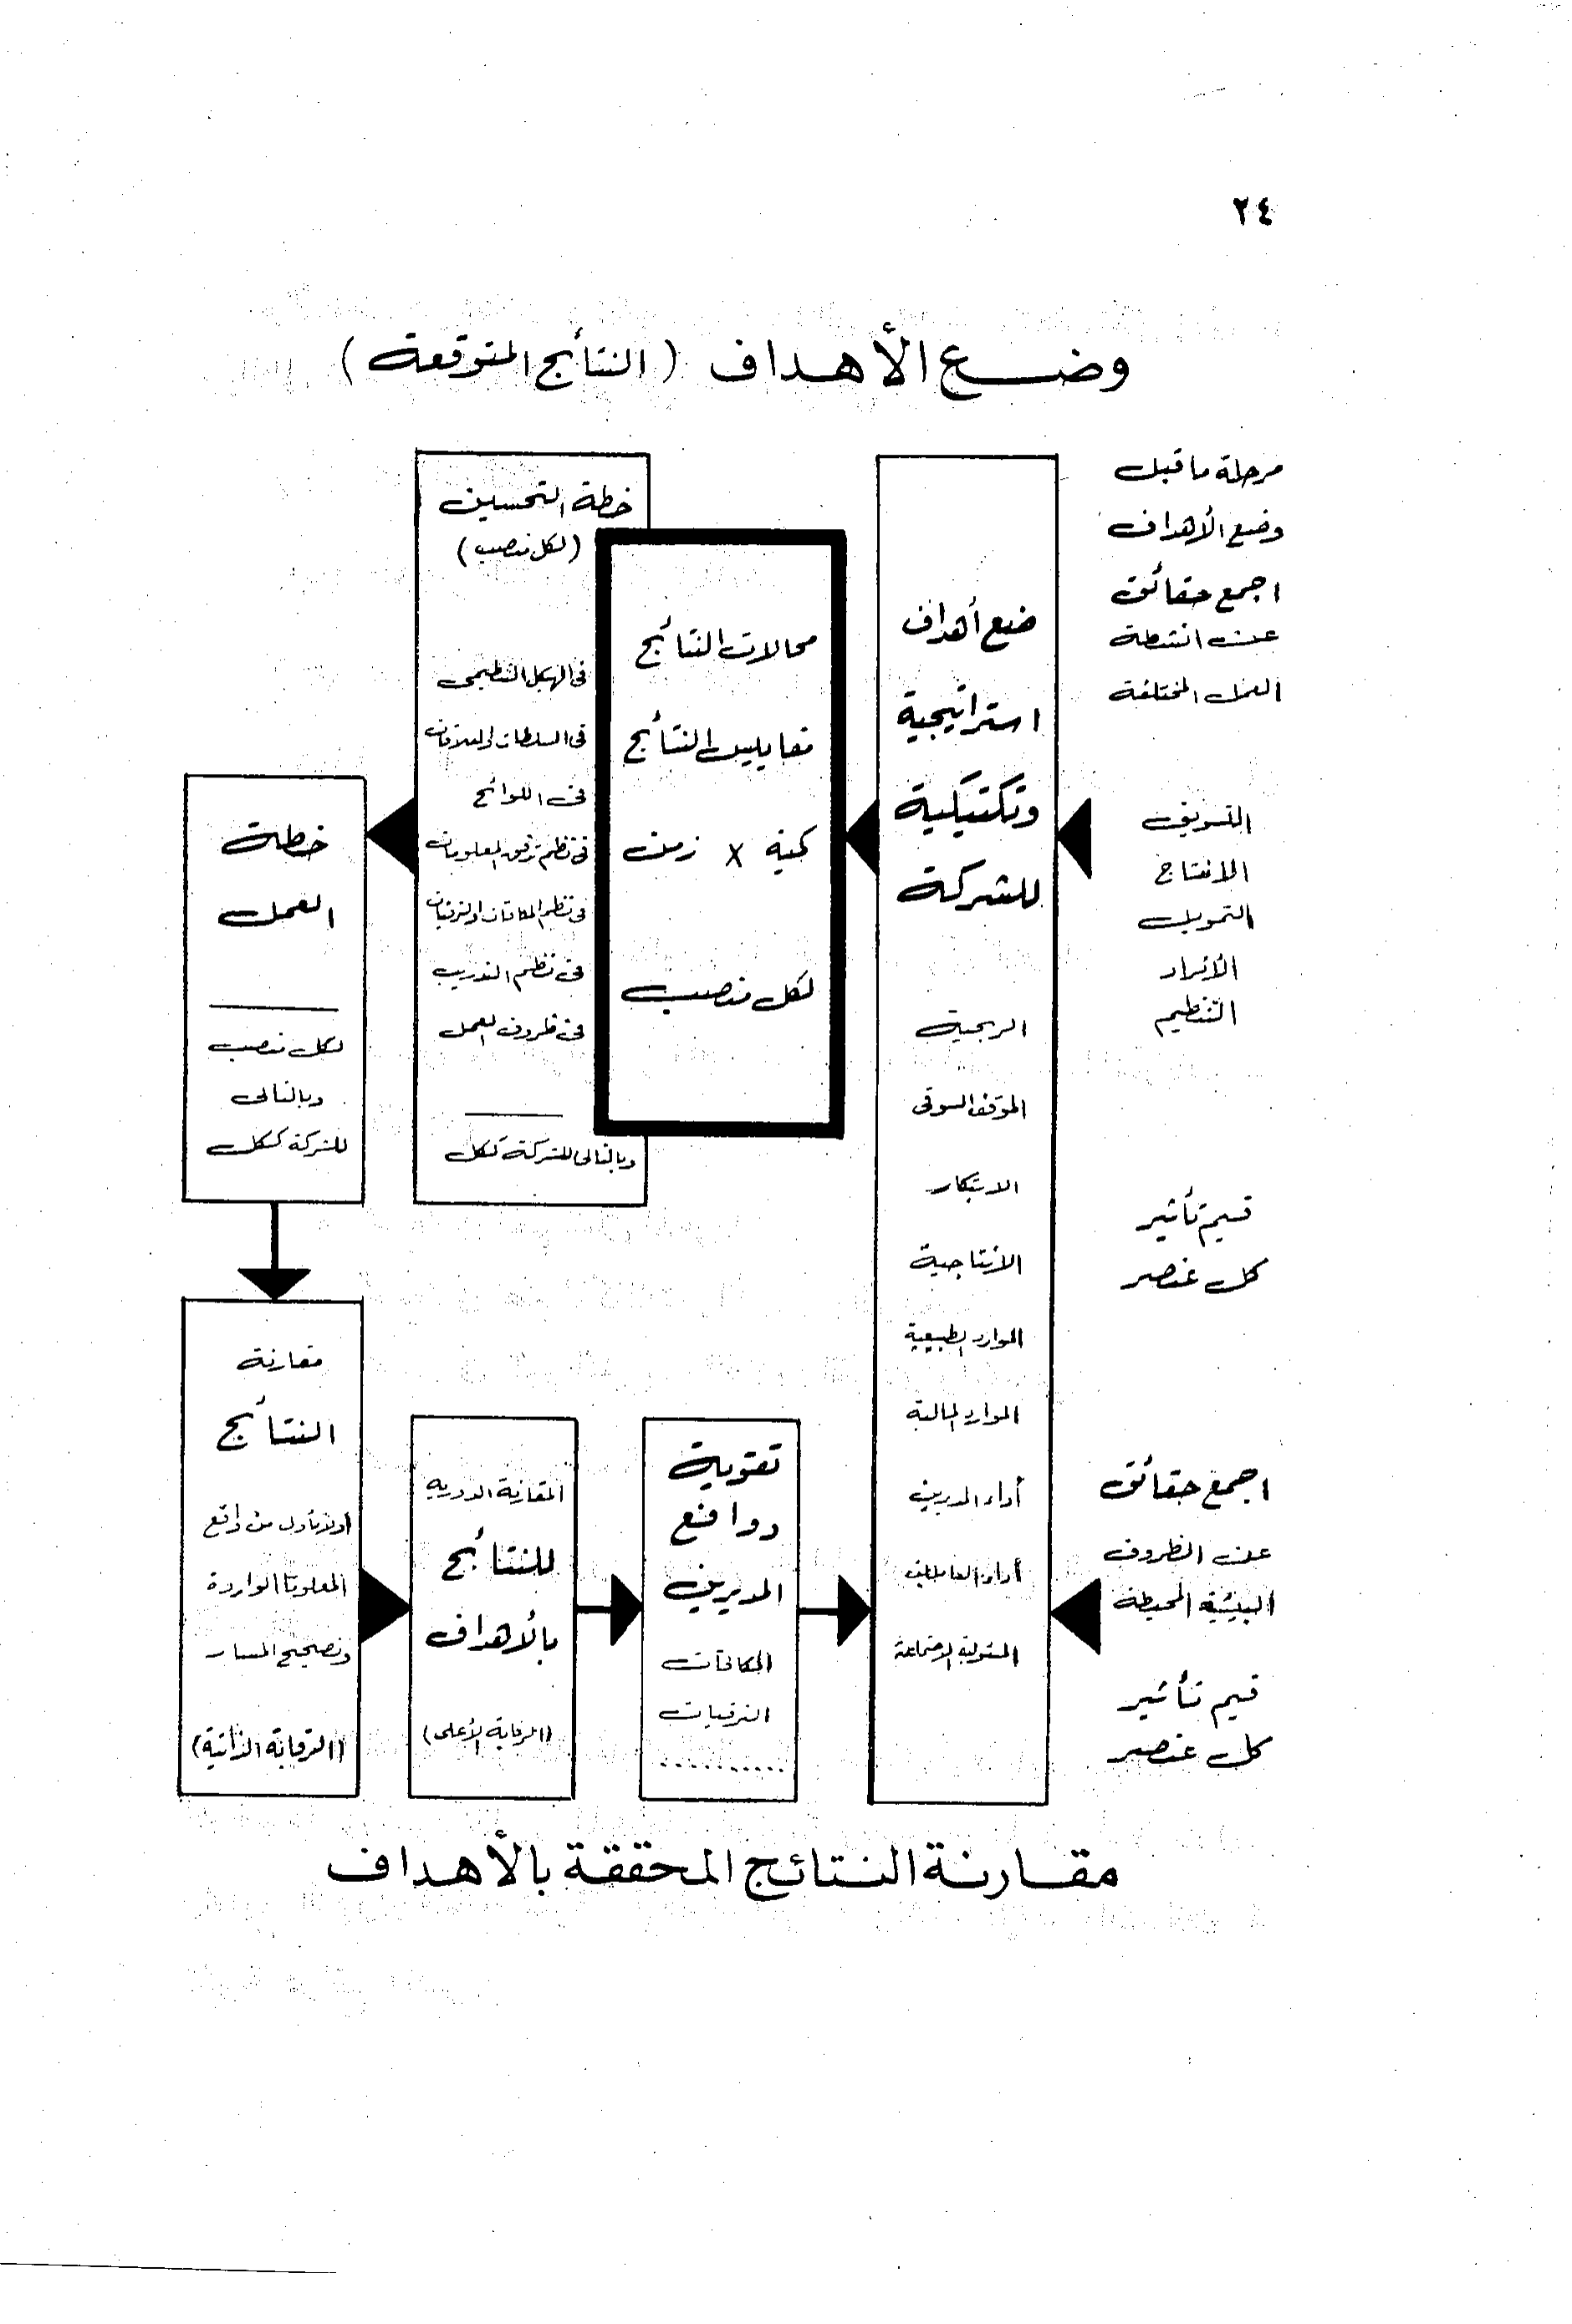 ٢٤
وضع الأهداف (النتائج المتوقعة)
مرحلة ما قبل
وضع الأهداف
اجمع حقائق
عن انشطة
العمل المختلفة
التسويق
الانتاج
التمويل
الأفراد
التنظيم
قيم تأثير
كل عنصر
اجمع حقائق
عن الظروف
البيئية المحيطة
قيم تأثير
كل عنصر
ضع أهداف
استراتيجية
وتكتيكية
للشركة
الربحية
الموقف السوقى
الابتكار
الانتاجية
الموارد الطبيعية
الموارد المالية
أداء المديرين
أداء العاملين
المسئولية الاجتماعية
مجالات النتائج
مقاييس النتائج
كمية x زمن
لكل منصب
خطة التحسين
(لكل منصب)
فى الهيكل التنظيمى
فى السلطات والعلاقات
فى اللوائح
فى نظم تدفق المعلومات
فى نظم المكافآت والترقيات
فى نظم التدريب
فى ظروف العمل
وبالتالى للشركة ككل
خطة
العمل
لكل منصب
وبالتالى
للشركة ككل
مقارنة
النتائج
أولا بأول من واقع
المعلومات الواردة
وتصحيح المسار
(الرقابة الذاتية)
المقارنة الدورية
للنتائج
بالأهداف
(الرقابة الأعلى)
تقوية
دوافع
المديرين
المكافآت
الترقيات
..........
مقارنة النتائج المحققة بالأهداف